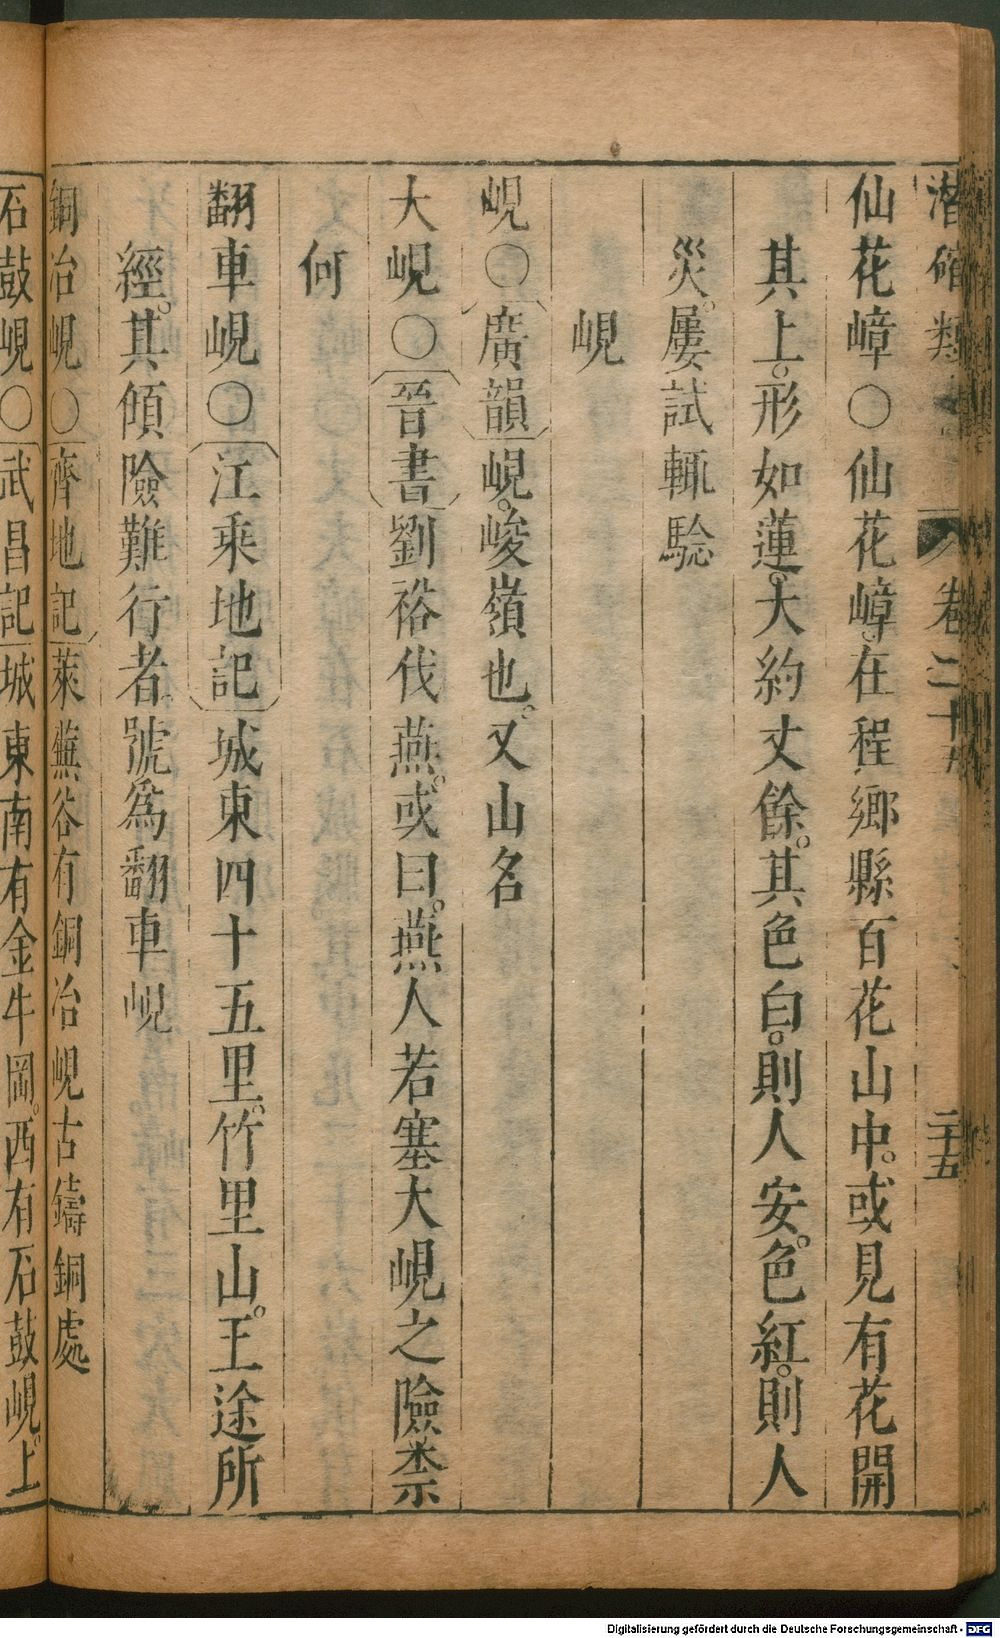 潛確類
卷二十五
二十五
仙花嶂○仙花嶂在程鄉縣百花山中。或見有花開
其上。形如蓮。大約丈餘。其色白。則人安。色紅。則人
災。屢試輒驗
峴
峴○廣韻峴。峻嶺也。又山名
大峴○晉書劉裕伐燕。或曰。燕人若塞大峴之險柰
何
翻車峴○江乘地記城東四十五里。竹里山。王途所
經。其傾險難行者號爲翻車峴
銅冶峴○齊地記萊蕪谷有銅冶峴古鑄銅處
石鼓峴○武昌記城東南有金牛岡。西有石鼓峴。上
Digitalisierung gefördert durch die Deutsche Forschungsgemeinschaft - DFG